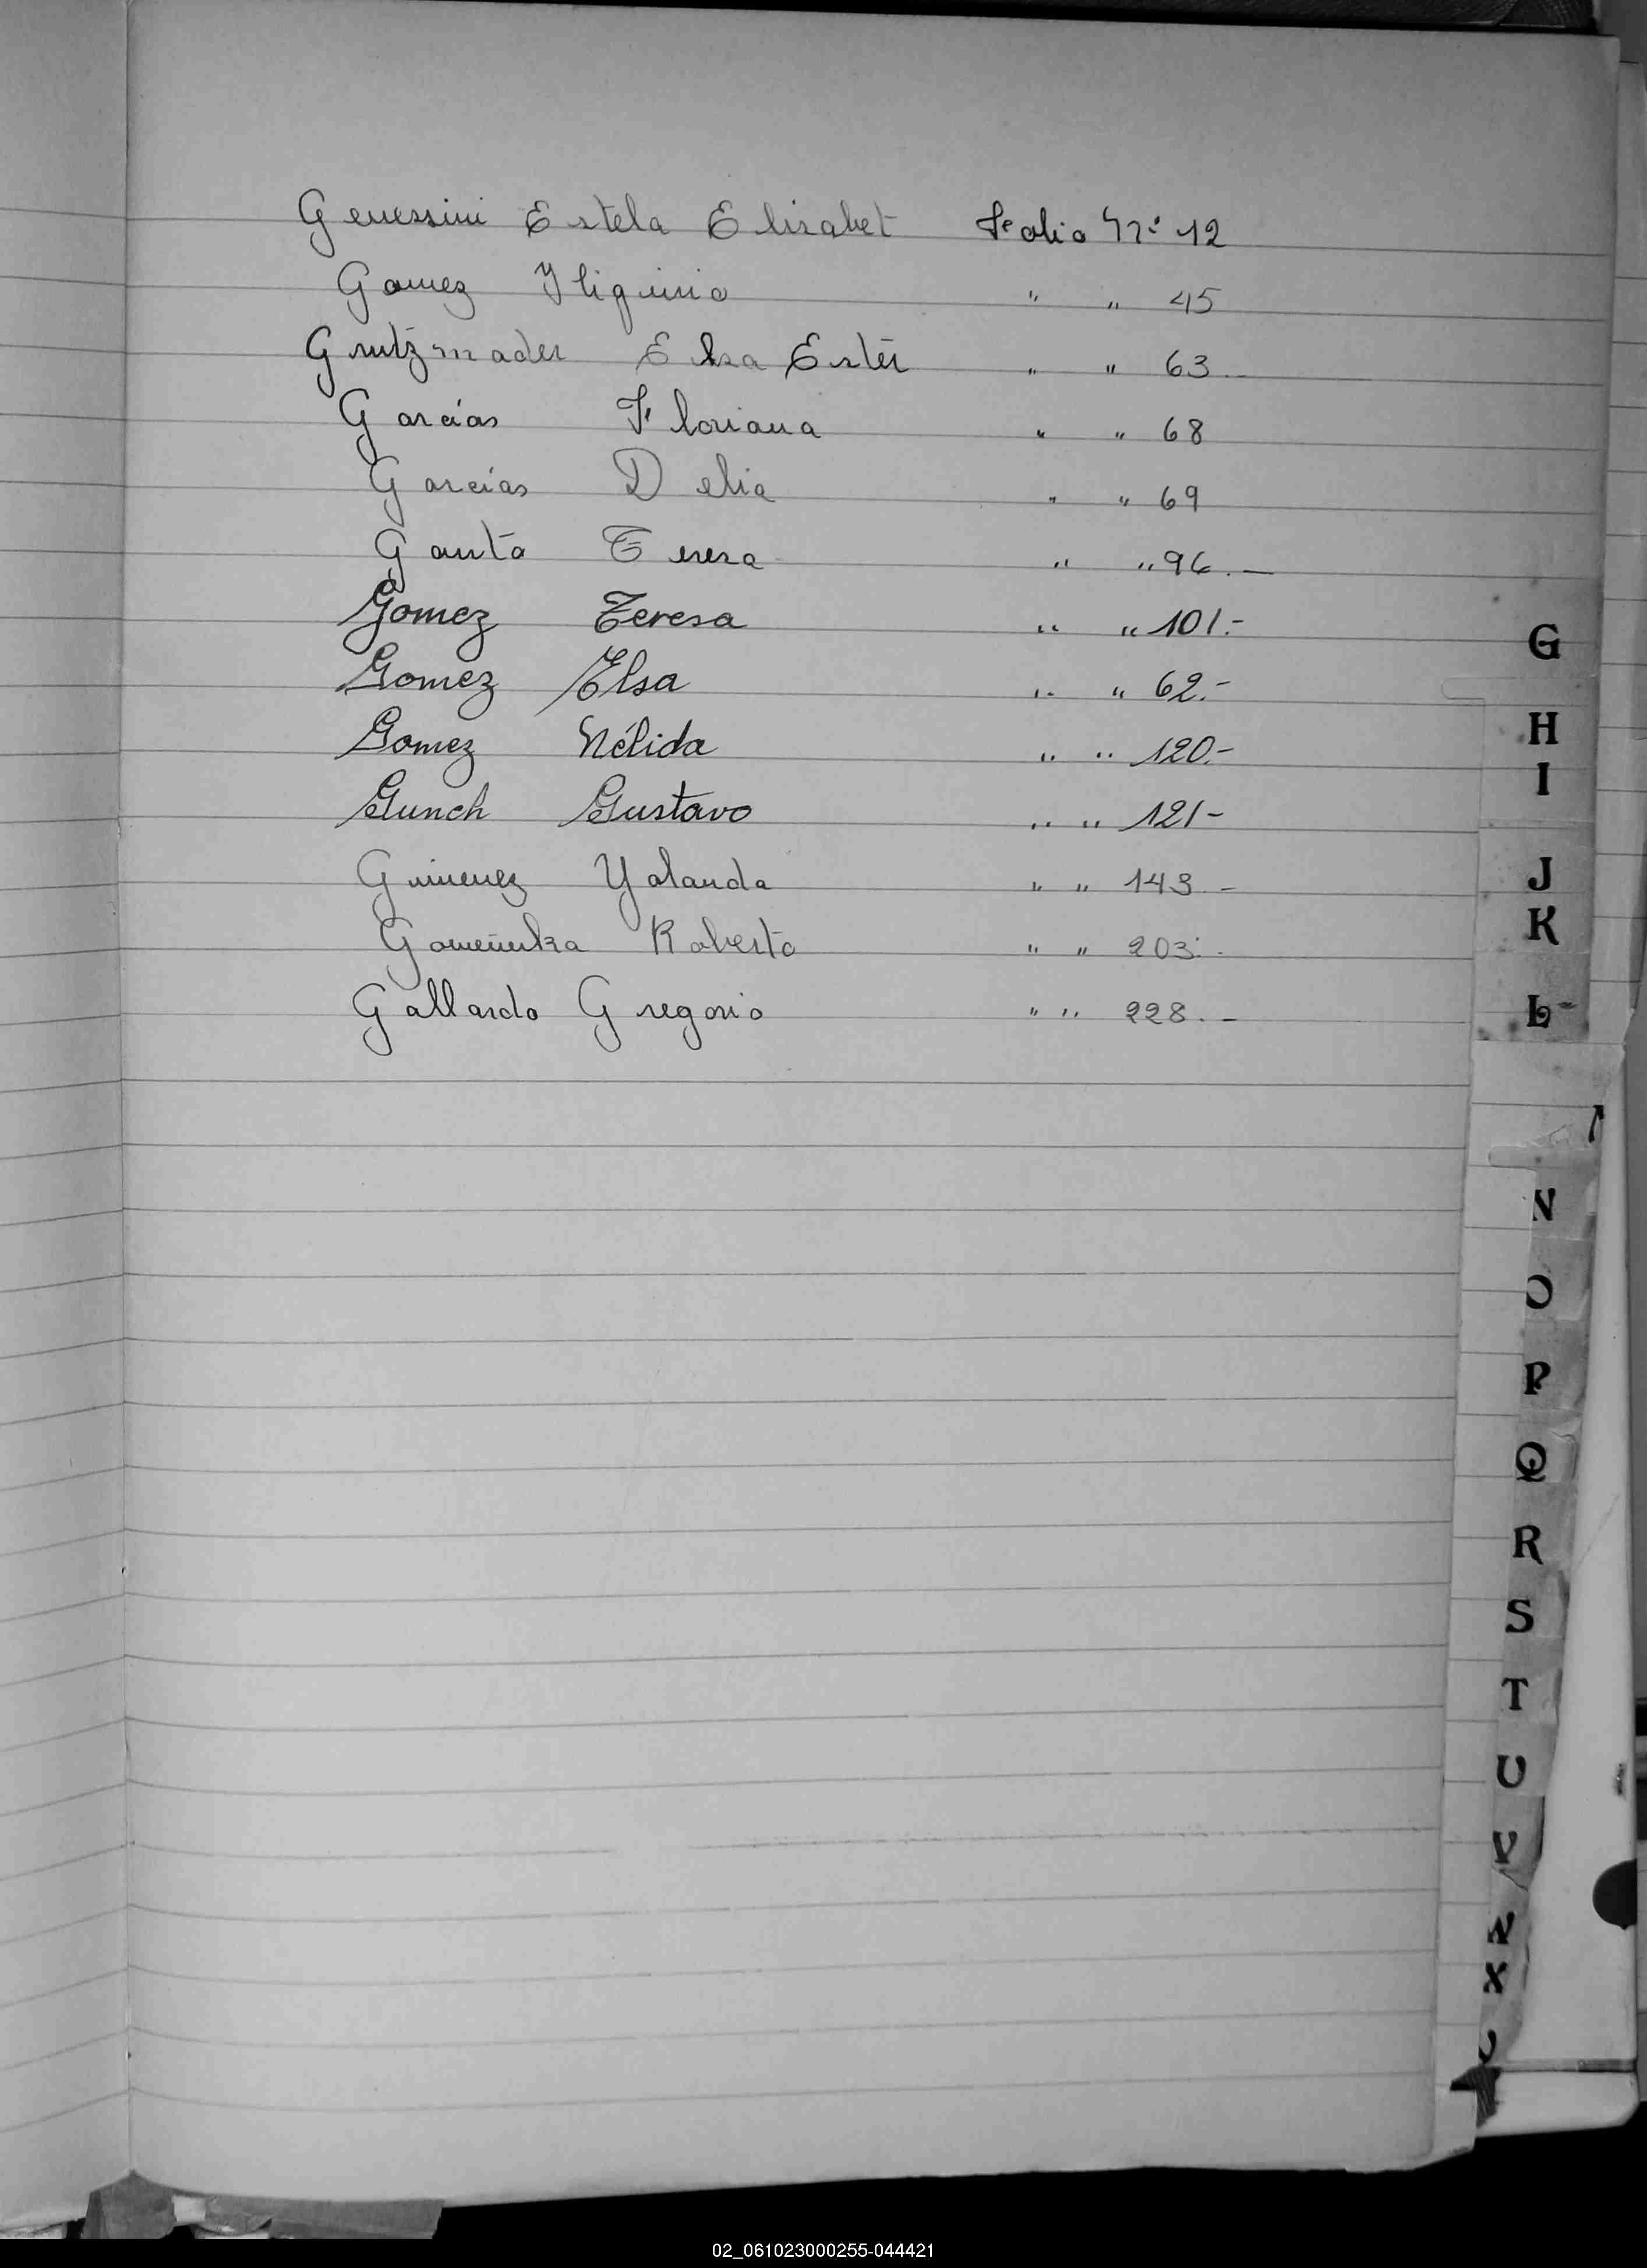 Genessini Estela Elisabet Folio Nº 12
Gomez Higinio " " 45
Grutzmader Elsa Ester " " 63.-
Garcías Floriana " " 68
Garcías Delia " " 69
Gauto Teresa " " 96.-
Gomez Teresa " " 101.-
Gomez Elsa " " 62.-
Gomez Nélida " " 120.-
Gunch Gustavo " " 121-
Gimenez Yolanda " " 143.-
Roberto " " 203.-
Gallardo Gregorio " " 228.-
G
H
I
J
K
L
N
O
P
Q
R
S
T
U
V
X
02_061023000255-044421